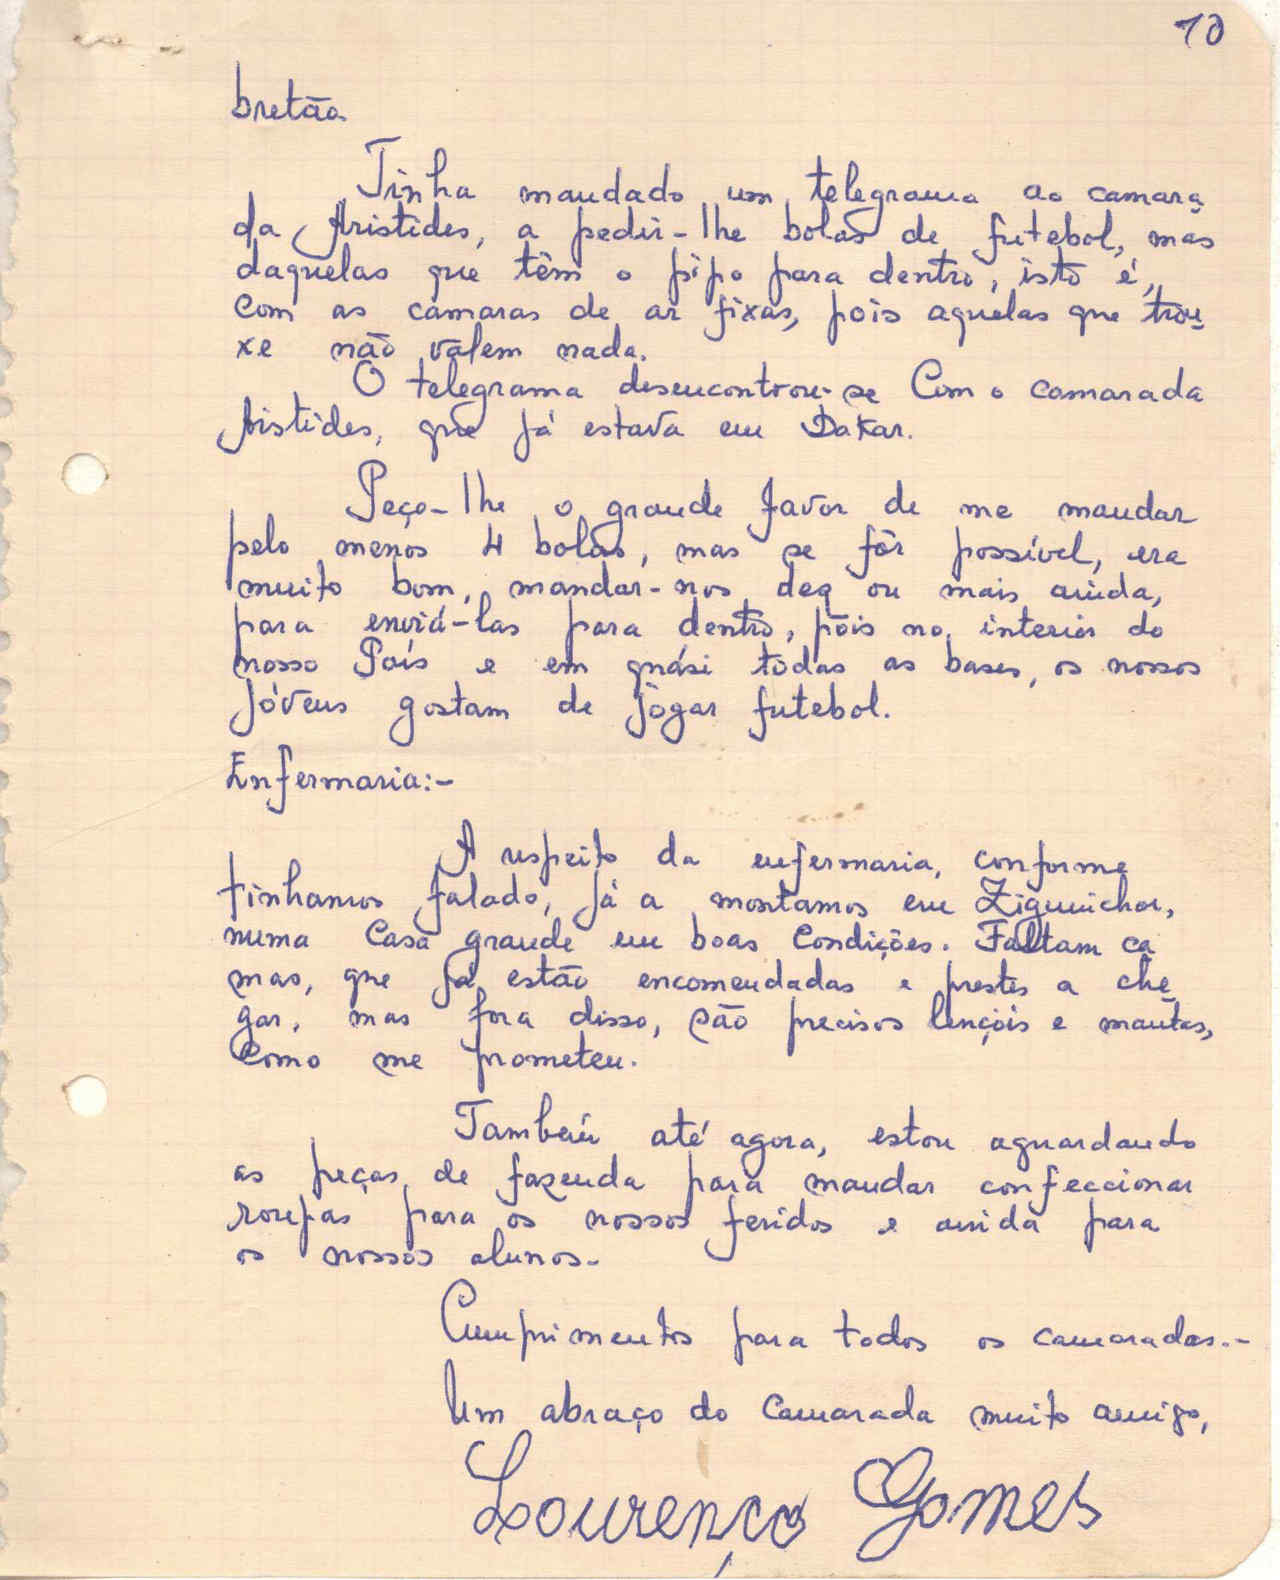 10
bretão.
Tinha mandado um telegrama ao camara
da Aristides, a pedir-lhe bolas de futebol, mas
daquelas que têm o pipo para dentro, isto é,
com as camaras de ar fixas, pois aquelas que trou
xe não valem nada.
O telegrama desencontrou-se Com o camarada
Aristides, que já estava em Dakar.
Peço-lhe o grande favor de me mandar
pelo menos 4 bolas, mas se fôr possível, era
muito bom, mandar-nos dez ou mais ainda,
para enviá-las para dentro, pois no interior do
nosso País e em quási todas as bases, os nossos
jóvens gostam de jogar futebol.
Enfermaria:-
A respeito da enfermaria, conforme
tinhamos falado, já a montamos em Ziguinchor,
numa Casa grande em boas Condições. Faltam ca
mas, que já estão encomendadas e prestes a che
gar, mas fora disso, são precisos lençóis e mantas,
Como me prometeu.
Também até agora, estou aguardando
as peças de fazenda para mandar confeccionar
roupas para os nossos feridos e ainda para
os nossos alunos.-
Cumprimentos para todos os camaradas.-
Um abraço do Camarada muito amigo,
Lourenço Gomes